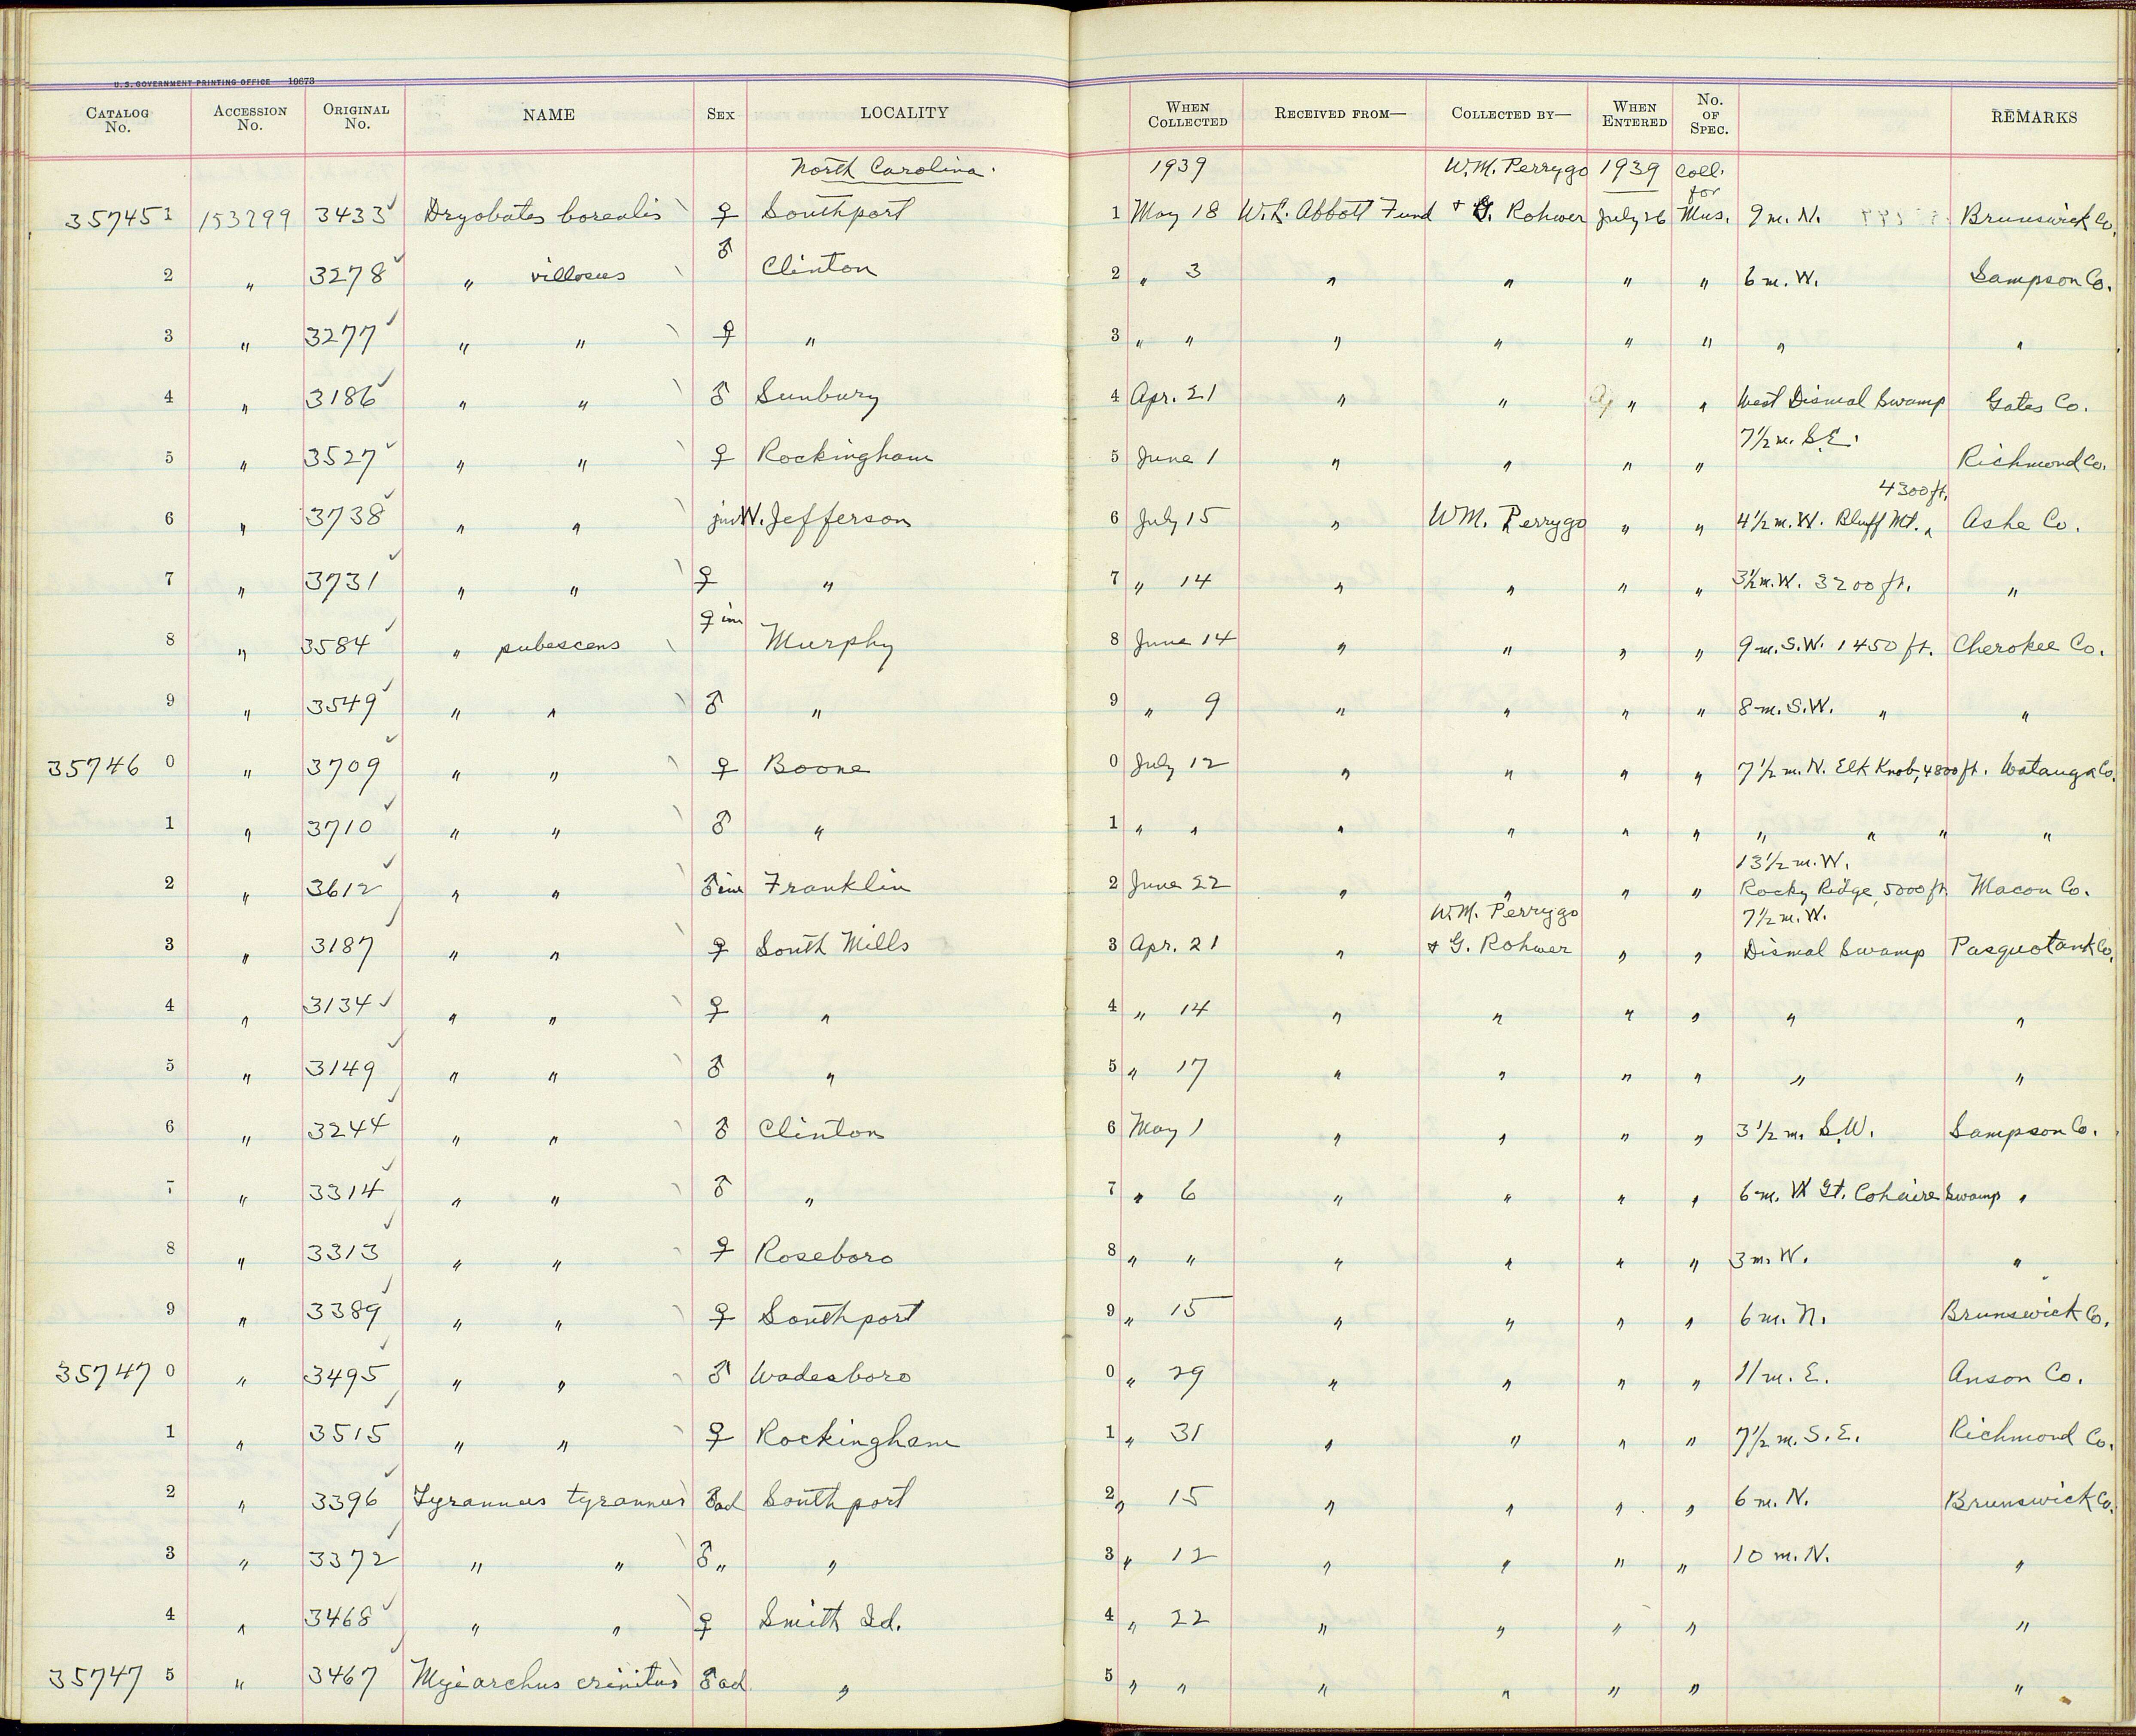 U.S. GOVERNMENT PRINTING OFFICE 10673
CATALOG No. ACCESSION No. ORIGINAL No. NAME SEX LOCALITY WHEN COLLECTED RECEIVED FROM— COLLECTED BY— WHEN ENTERED No. OF SPEC. REMARKS
North Carolina. 1939 W.M. Perrygo 1939 Coll. for
357451 153299 3433 ✓ Dryobates borealis ♀ Southport 1 May 18 W.L. Abbott Fund + G. Rohwer July 26 Mus. 9 m. N. Brunswick Co.
2 " 3278 ✓ " villosus ♂ Clinton 2 " 3 " " " " 6 m. W. Sampson Co.
3 " 3277 ✓ " " ♀ " 3 " " " " " " " "
4 " 3186 ✓ " " ♂ Sunbury 4 Apr. 21 " " " " West Dismal Swamp Gates Co.
5 " 3527 ✓ " " ♀ Rockingham 5 June 1 " " " " 7½ m. S.E. Richmond Co.
6 " 3738 ✓ " " juv W. Jefferson 6 July 15 " W.M. Perrygo " " 4½ m. W. Bluff Mt. 4300 ft. Ashe Co.
7 " 3731 ✓ " " ♀ " 7 " 14 " " " " 3½ m. W. 3200 ft. "
8 " 3584 ✓ " pubescens ♀ im Murphy 8 June 14 " " " " 9 m. S.W. 1450 ft. Cherokee Co.
9 " 3549 ✓ " " ♂ " 9 " 9 " " " " 8 m. S.W. " "
35746 0 " 3709 ✓ " " ♀ Boone 0 July 12 " " " " 7½ m. N. Elk Knob, 4800 ft. Watauga Co.
1 " 3710 ✓ " " ♂ " 1 " " " " " " " " " "
2 " 3612 ✓ " " ♂ im Franklin 2 June 22 " " " " 13½ m. W. Rocky Ridge, 5000 ft. Macon Co.
3 " 3187 ✓ " " ♀ South Mills 3 Apr. 21 " W.M. Perrygo + G. Rohwer " " 7½ m. W. Dismal Swamp Pasquotank Co.
4 " 3134 ✓ " " ♀ " 4 " 14 " " " " " "
5 " 3149 ✓ " " ♂ " 5 " 17 " " " " " "
6 " 3244 ✓ " " ♂ Clinton 6 May 1 " " " " 3½ m. S.W. Sampson Co.
7 " 3314 ✓ " " ♂ " 7 " 6 " " " " 6 m. W Gt. Cohaire Swamp "
8 " 3313 ✓ " " ♀ Roseboro 8 " " " " " " 3 m. W. "
9 " 3389 ✓ " " ♀ Southport 9 " 15 " " " " 6 m. N. Brunswick Co.
35747 0 " 3495 ✓ " " ♂ Wadesboro 0 " 29 " " " " 11 m. E. Anson Co.
1 " 3515 ✓ " " ♀ Rockingham 1 " 31 " " " " 7½ m. S.E. Richmond Co.
2 " 3396 ✓ Tyrannus tyrannus ♂ ad Southport 2 " 15 " " " " 6 m. N. Brunswick Co.
3 " 3372 ✓ " " ♂ " " 3 " 12 " " " " 10 m. N. "
4 " 3468 ✓ " " ♀ Smith Id. 4 " 22 " " " " "
35747 5 " 3467 ✓ Myiarchus crinitus ♂ ad. " 5 " " " " " " "